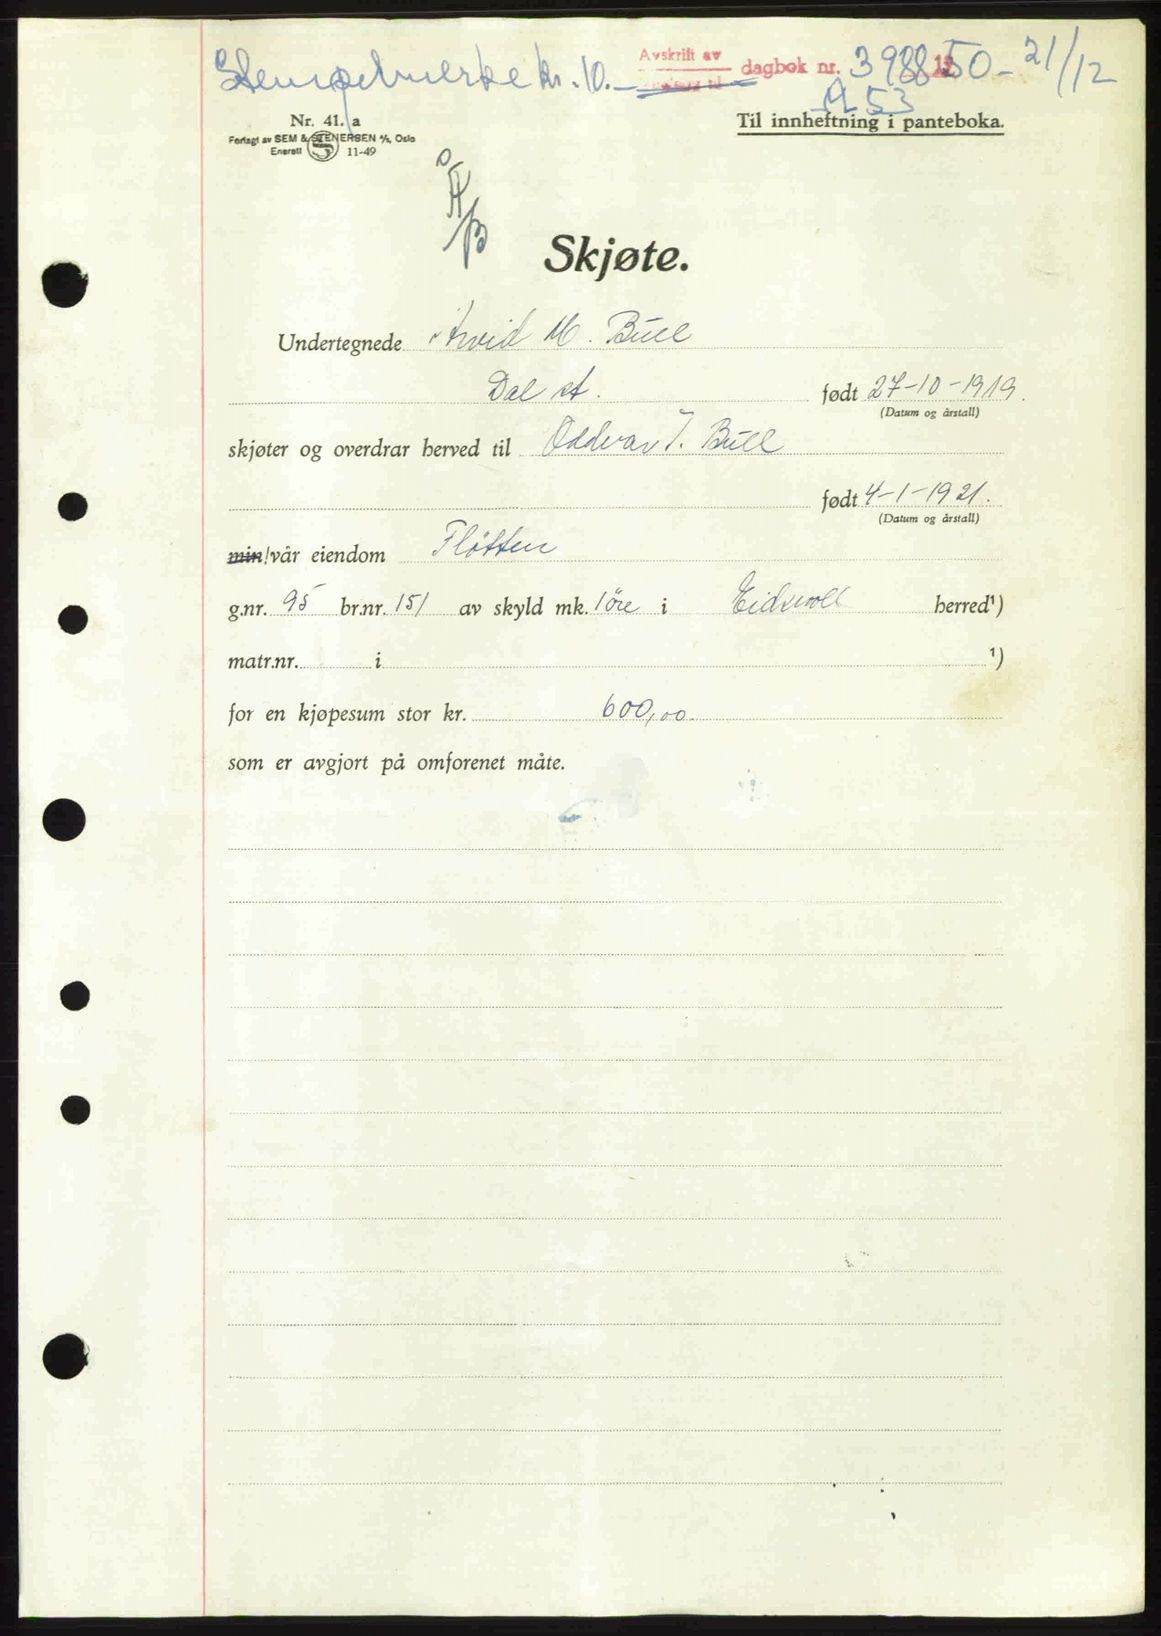 Stempelmerke kr. 10.—
Avskrift av
dagbok nr. 3988 1950 - 21/12
A 53
Nr. 41. a
Forlagt av SEM & STENERSEN A/S, Oslo
Enerett S 11-49
Til innheftning i panteboka.
Å/B
Skjøte.
Undertegnede Arvid M. Bull
Dal st. født 27-10-1919.
(Datum og årstall)
skjøter og overdrar herved til Oddvar T. Bull
født 4-1-1921.
(Datum og årstall)
min/vår eiendom Fløtten
g.nr. 95 br.nr. 151 av skyld mk. 1 øre i Eidsvoll herred¹)
matr.nr. i ¹)
for en kjøpesum stor kr. 600,00.
som er avgjort på omforenet måte.